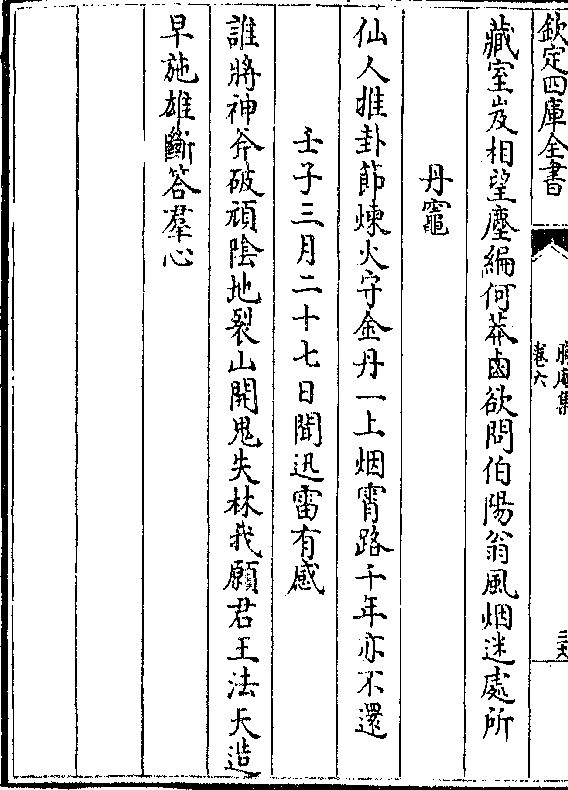 欽定四庫全書
卷六
藏室岌相望塵編何莽鹵欲問伯陽翁風烟迷處所
丹竈
仙人推卦節煉火守金丹一上烟霄路千年亦不還
壬子三月二十七日聞迅雷有感
誰將神斧破頑陰地裂山開鬼失林我願君王法天造
早施雄斷答羣心